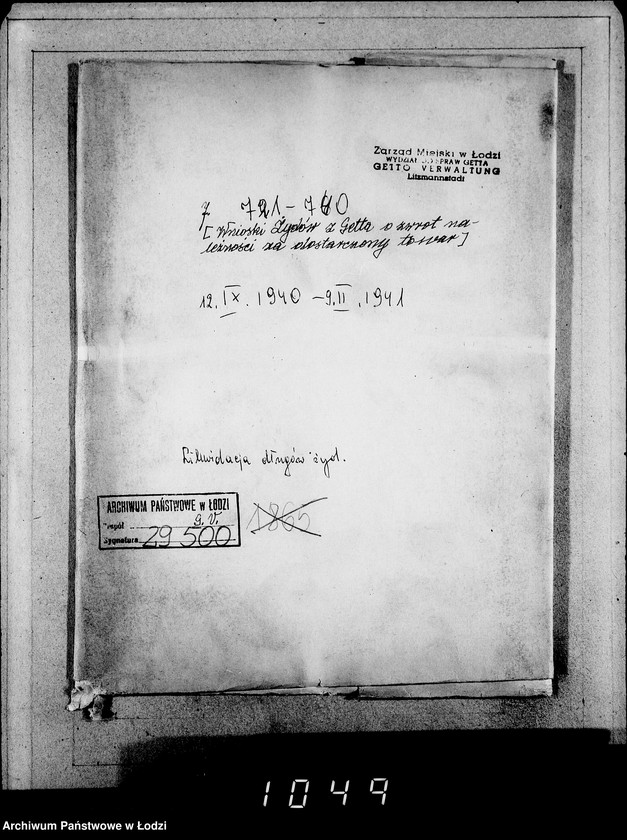 Zarząd Miejski w Łodzi
WYDZIAŁ SPRAW GETTA
GETTO VERWALTUNG
Litzmannstadt
7 721-740
[Wnioski Żydów z Getta o zwrot na-
leżności za dostarczony towar]
12.IX.1940 – 9.II.1941
Likwidacja długów żyd.
ARCHIWUM PAŃSTWOWE w ŁODZI
Zespół G.V.
Sygnatura 29 500
1865
1049
Archiwum Państwowe w Łodzi